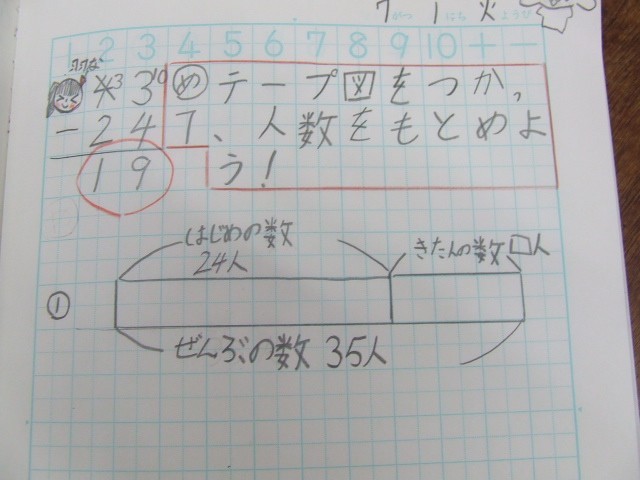 7がつ 1にち 火ようび
1 2 3 4 5 6 7 8 9 10 + −
4 3 3 10
− 2 4
1 9
め テープ図をつかっ
て、人数をもとめよ
う!
はじめの数
24人
きたんの数□人
①
ぜんぶの数 35人